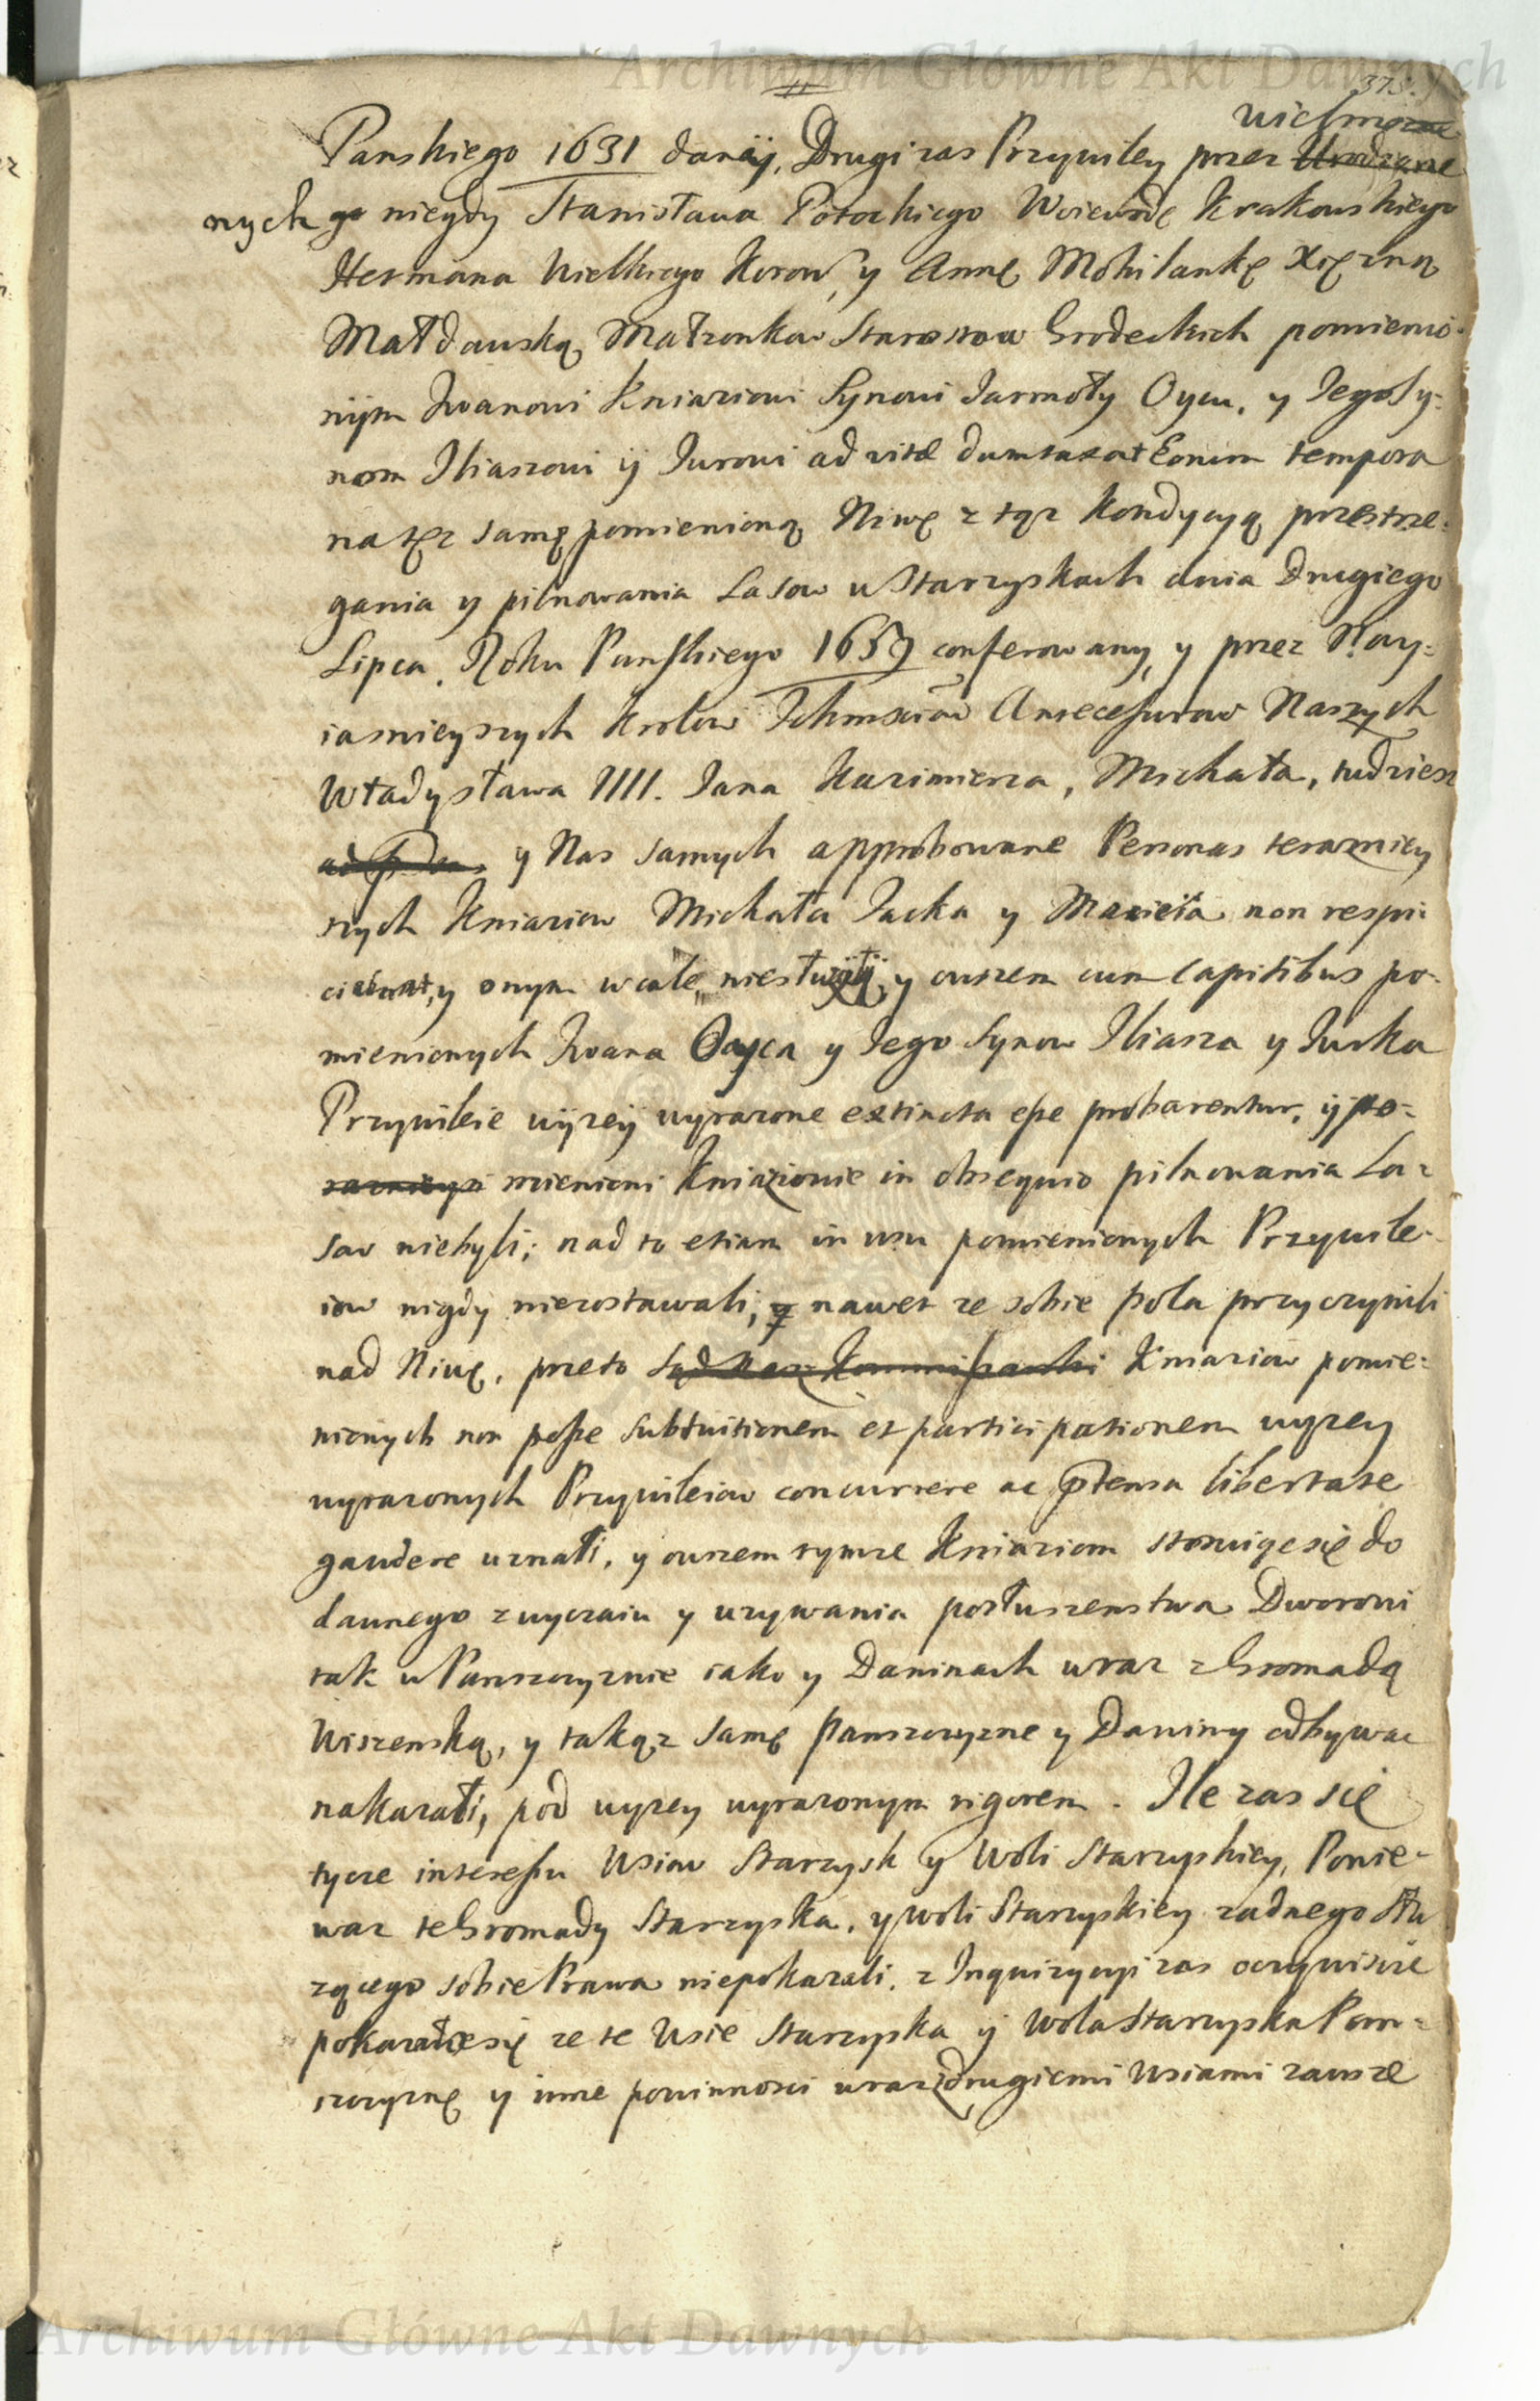 Archiwum Główne Akt Dawnych
375.
wielmożne
Panskiego 1631 danÿ, Drugi zas Przywiley przez Urodzone
nych go niegdy Stanisława Potockiego Woiewodę Krakowskiego
Hetmana Wielkiego Koron, y Annę Mohilankę Xiężnę
Małdawską, Małzonkow Starostow Grodeckich pomienio-
nÿm Iwanowi Kniaziowi Synowi Jarmoły Oycu, y Jego Sy-
nom Iliaszowi ÿ Jurowi ad vitæ dumtaxat Eorum tempora
na tęz samę pomienioną Niwę z tąz Kondycyą przestrze-
gania y pilnowania Lasow w Starzyskach dnia Drugiego
Lipca. Roku Panskiego 1659 conferowany, y przez Nay-
iasnieyszych Krolow Ichmsciow Antecessorow Naszych
Władysława IIII. Jana Kazimierza, Michała, tudziesz
y Nas samych approbowane Personas terazniey
szych Kniaziow Michała Jacka y Macieia non respi-
ciebant, y onym wcale niesłużyły, y owszem cum Capitibus po-
mienionych Iwana Oyca y Jego Synow Iliasza y Jurka
Przywileie wÿzeÿ wyrazone extincta esse probarentur, ÿ po-
mienieni Kniaziowie in obsequio pilnowania La-
sow niebyli; nad to etiam in usu pomienionych Przywile-
iow nigdy niezostawali, y nawet ze sobie pola przyczynili
nad Niwę, przeto Sąd Nasz Kommissarski Kniaziow pomie-
nionych non posse substitutionem et participationem wyzey
wyrazonych Przywileiow concurrere ac ptensa libertate
gaudere uznali, y owszem tymze Kniaziom stosuiąc się do
dawnego zwyczaiu y uzywania posłuszenstwa Dworowi
tak w Panszczyznie iako y Daninach wraz z Gromadą
Wiszenską, y takąz samę panszczyzne y Daniny odbywac
nakazali, pod wyzey wyrazonym rigorem. Ile zas się
tycze interessu Wsiow Starzysk y Woli Starzyskiey, Ponie-
waz te Gromady Starzyska, y Woli Starzyskiey zadnego słu
zącego sobie Prawa niepokazali. z Inquizycyi zas oczywiscie
pokazało się ze te Wsie Starzyska ÿ Wola Starzyska Pan-
szczyznę y inne powinnosci wraz z drugiemi Wsiami zawsze
Archiwum Główne Akt Dawnych